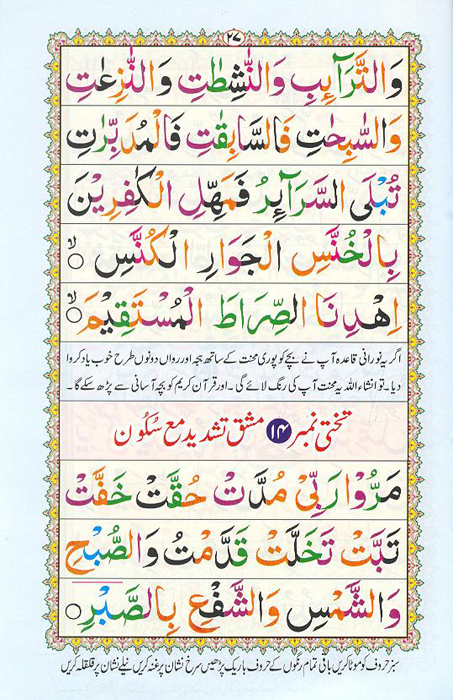 ۲۷
وَالتَّرَآئِبِ وَالنّٰشِطٰتِ وَالنّٰزِعٰتِ
وَالسّٰبِحٰتِ فَالسّٰبِقٰتِ فَالْمُدَبِّرٰتِ
تُبْلَى السَّرَآئِرُ فَمَهِّلِ الْكٰفِرِيْنَ
بِالْخُنَّسِ الْجَوَارِ الْكُنَّسِ ۙ
اِهْدِنَا الصِّرَاطَ الْمُسْتَقِيْمَ ۙ
اگر یہ نورانی قاعدہ آپ نے بچے کو پوری محنت کے ساتھ ہجہ اور رواں دونوں طرح خوب یاد کروا
دیا۔ تو انشاء اللہ یہ محنت آپ کی رنگ لائے گی۔ اور قرآن کریم کو بچہ آسانی سے پڑھ سکے گا۔
تختی نمبر ۱۴ مشق تشدید مع سُکُون
مَرُّوْا رَبِّيْ مُدَّتْ حُقَّتْ خَفَّتْ
تَبَّتْ تَخَلَّتْ قَدَّمْتُ وَالصُّبْحِ
وَالشَّمْسِ وَالشَّفْعِ بِالصَّبْرِ ○
سبز حروف کو موٹا کریں باقی تمام رنگوں کے حروف باریک پڑھیں سرخ نشان پر غنہ کریں نیلے نشان پر قلقلہ کریں